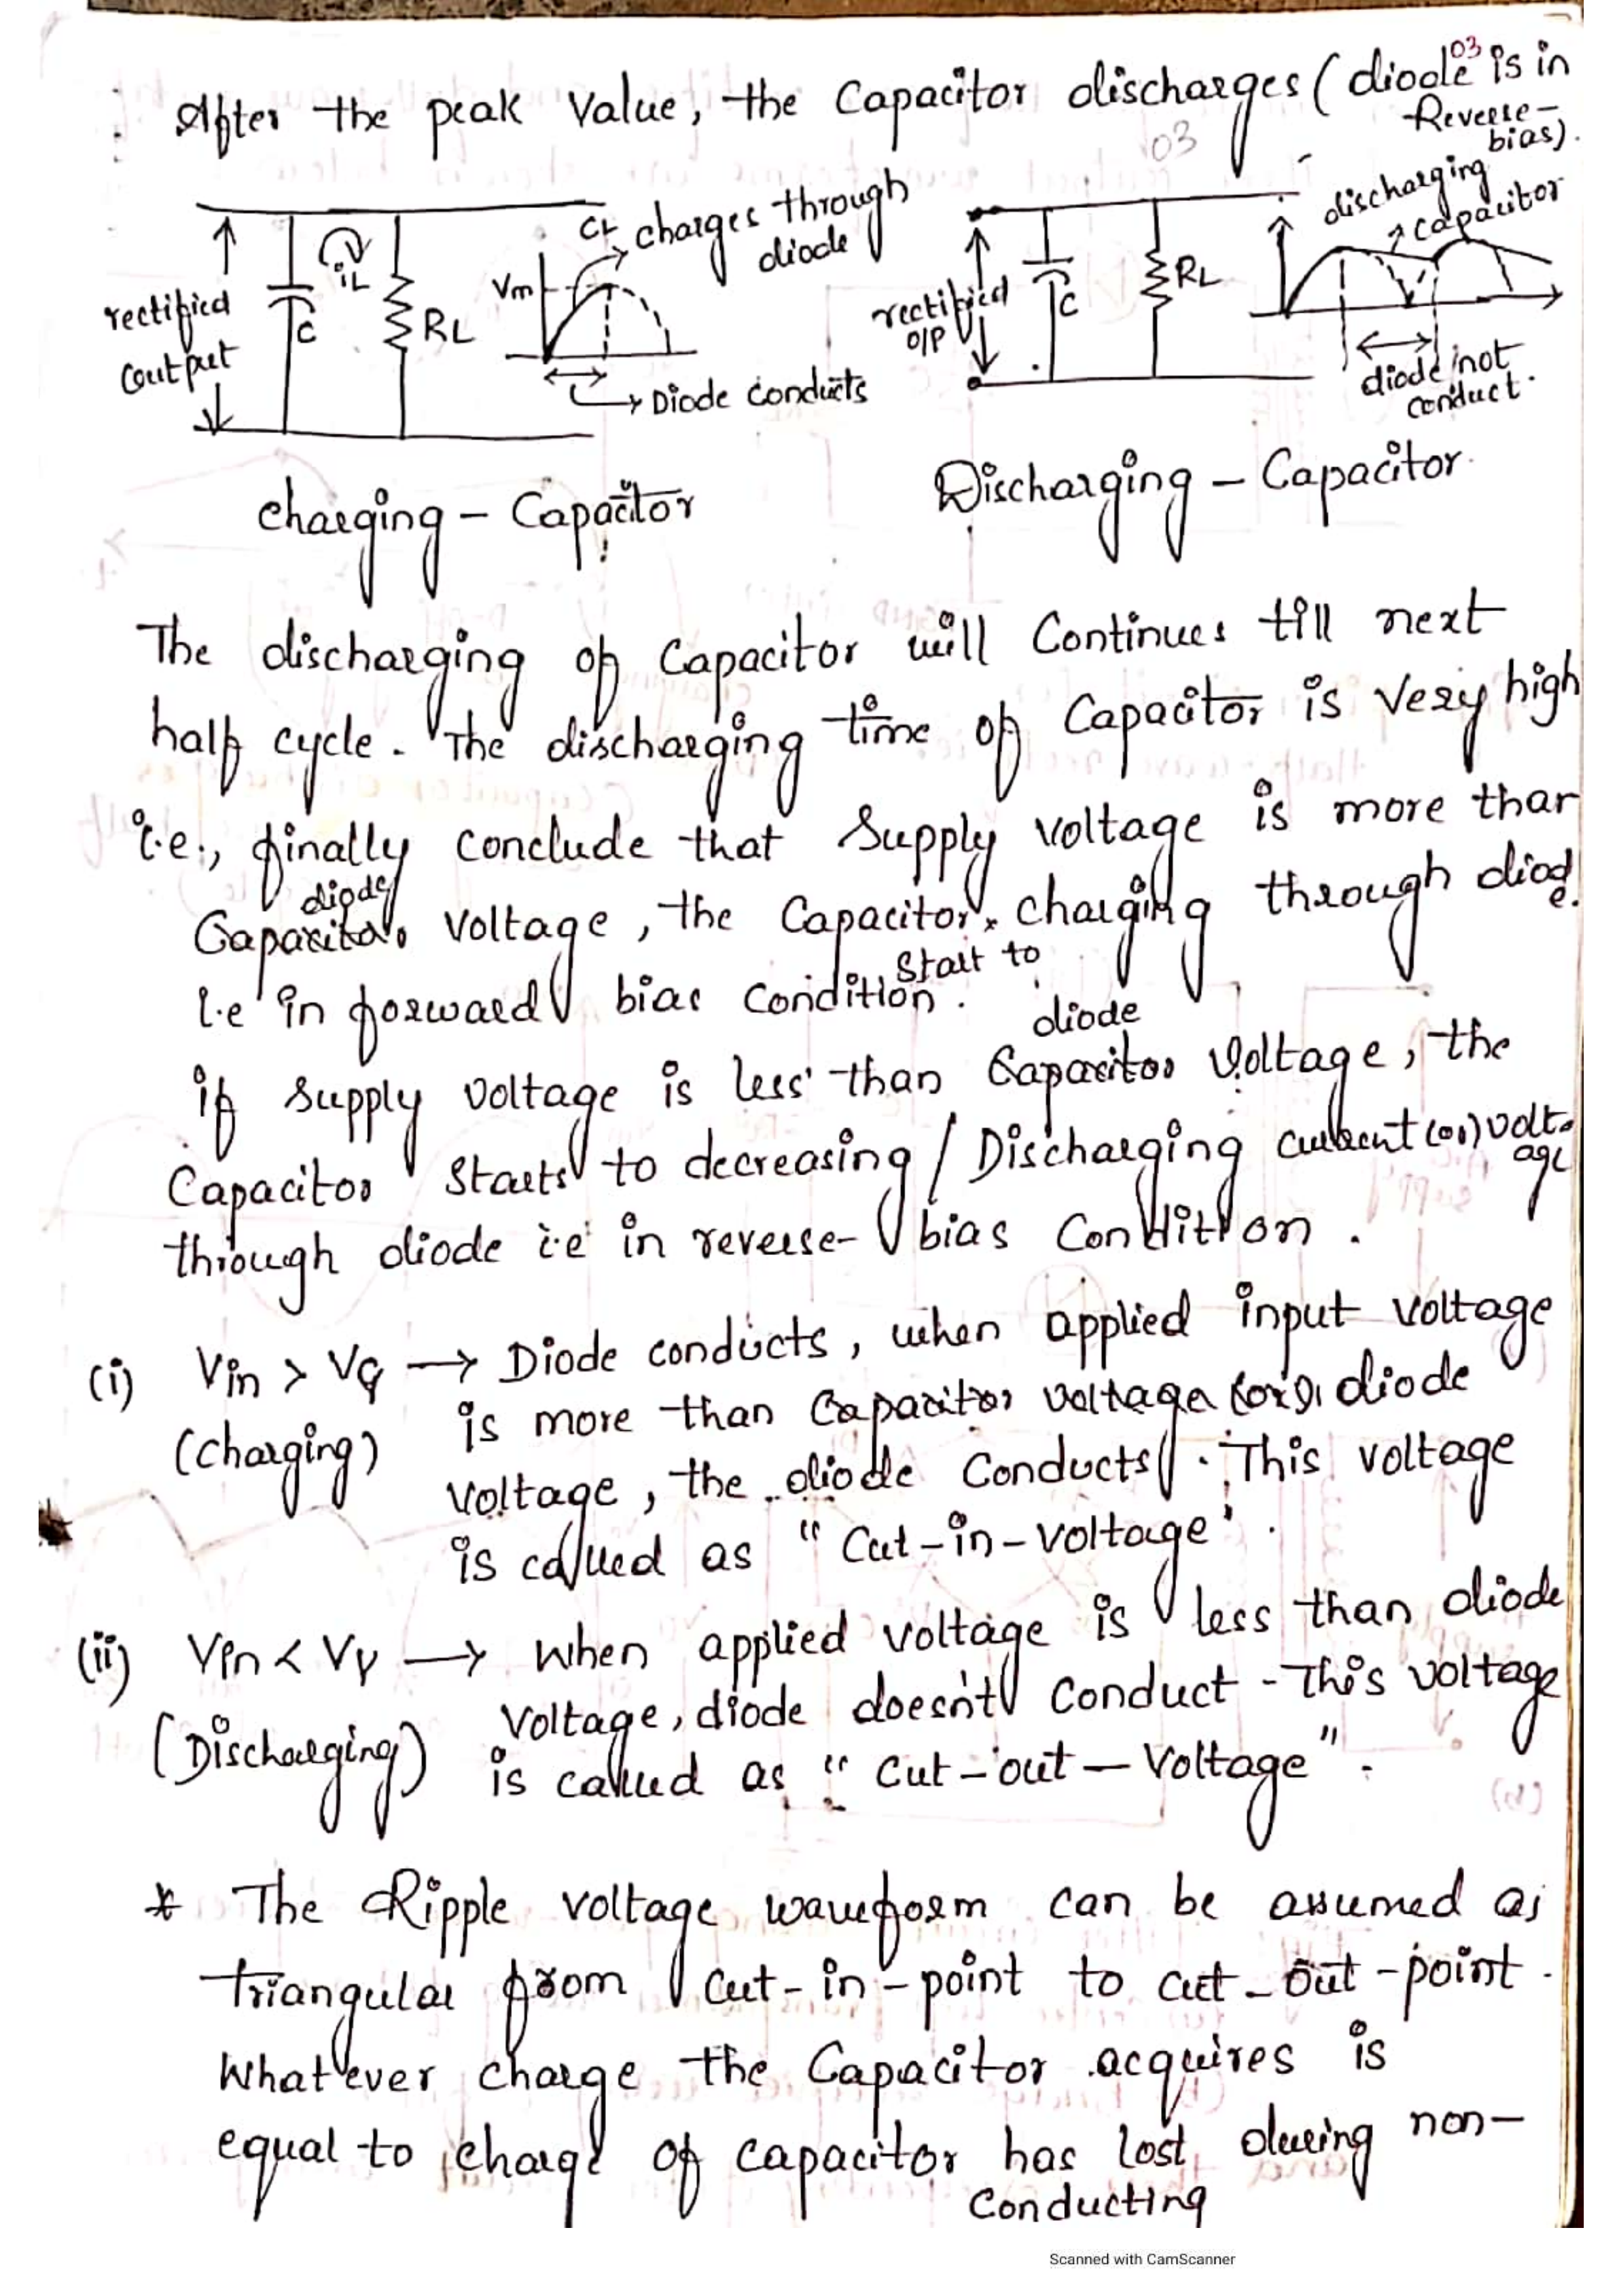 03
After the peak Value, the Capacitor discharges (diode is in Reverse-bias).
03
rectified output
C
iL
RL
Vm
CL charges through diode
Diode conducts
rectified O/P
C
RL
discharging capacitor
diode not conduct.
charging - Capacitor
Discharging - Capacitor.
The discharging of Capacitor will Continues till next
half cycle. The discharging time of Capacitor is Very high
i.e., finally conclude that Supply voltage is more than
diode
Capacitor Voltage, the Capacitor charging through diode.
Start to
i.e in forward bias condition.
diode
if supply voltage is less than Capacitor Voltage, the
Capacitor Starts to decreasing / Discharging current (or) voltage
through diode i.e in reverse- bias Condition.
(i) Vin > Vγ → Diode conducts, when applied input voltage
(charging) is more than Capacitor voltage (or) diode
Voltage, the diode Conducts. This voltage
is called as "Cut-in-voltage".
(ii) Vin < Vγ → When applied voltage is less than diode
(Discharging) Voltage, diode doesn't conduct - This voltage
is called as "Cut-out-Voltage".
* The Ripple voltage waveform can be assumed as
triangular from cut-in-point to cut-out-point.
Whatever charge the Capacitor acquires is
equal to charge of capacitor has lost during non-
Conducting
Scanned with CamScanner